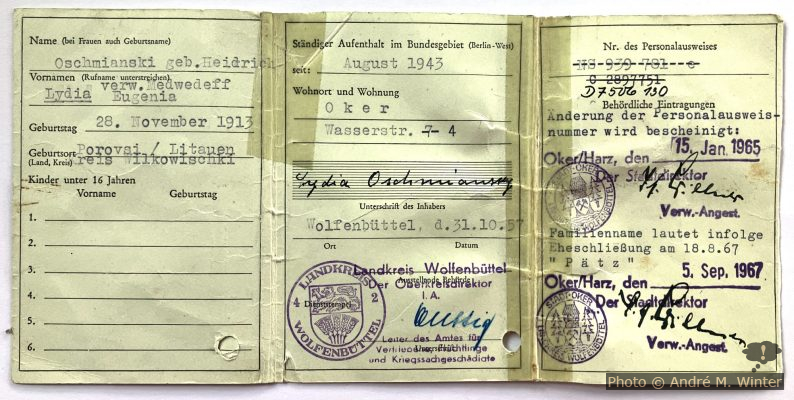 Name (bei Frauen auch Geburtsname)
Oschmianski geb.Heidrich
verw.Medwedeff
Vornamen (Rufname unterstreichen)
Lydia Eugenia
Geburtstag 28. November 1913
Geburtsort Porovai / Litauen
(Land, Kreis) Kreis Wilkowischki
Kinder unter 16 Jahren
Vorname Geburtstag
1.
2.
3.
4.
5.
6.
Ständiger Aufenthalt im Bundesgebiet (Berlin-West)
seit: August 1943
Wohnort und Wohnung
Oker
Wasserstr. 7 4
Lydia Oschmiansky
Unterschrift des Inhabers
Wolfenbüttel, d.31.10.57
Ort Datum
Landkreis Wolfenbüttel
Ausstellende Behörde
Der Oberkreisdirektor
I.A.
Dienststempel
LANDKREIS
4 2
WOLFENBÜTTEL
Leiter des Amtes für
Vertriebene, Flüchtlinge
Unterschrift
und Kriegssachgeschädigte
Nr. des Personalausweises
NS 939 781 c
C 2897751
D7506130
Behördliche Eintragungen
Änderung der Personalausweis-
nummer wird bescheinigt:
Oker/Harz, den 15. Jan. 1965
Der Stadtdirektor
STADT OKER
Verw.-Angest.
Familienname lautet infolge
Eheschließung am 18.8.67
"Pätz"
Oker/Harz, den 5. Sep. 1967
Der Stadtdirektor
STADT OKER
LANDKREIS WOLFENBÜTTEL
Verw.-Angest.
Photo © André M. Winter